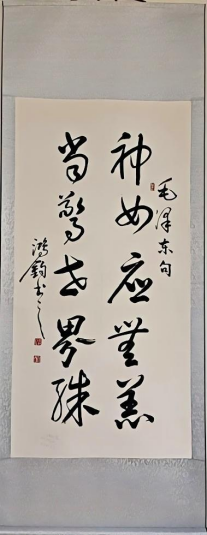 毛泽东句
神女应无恙
当惊世界殊
鸿钧书之